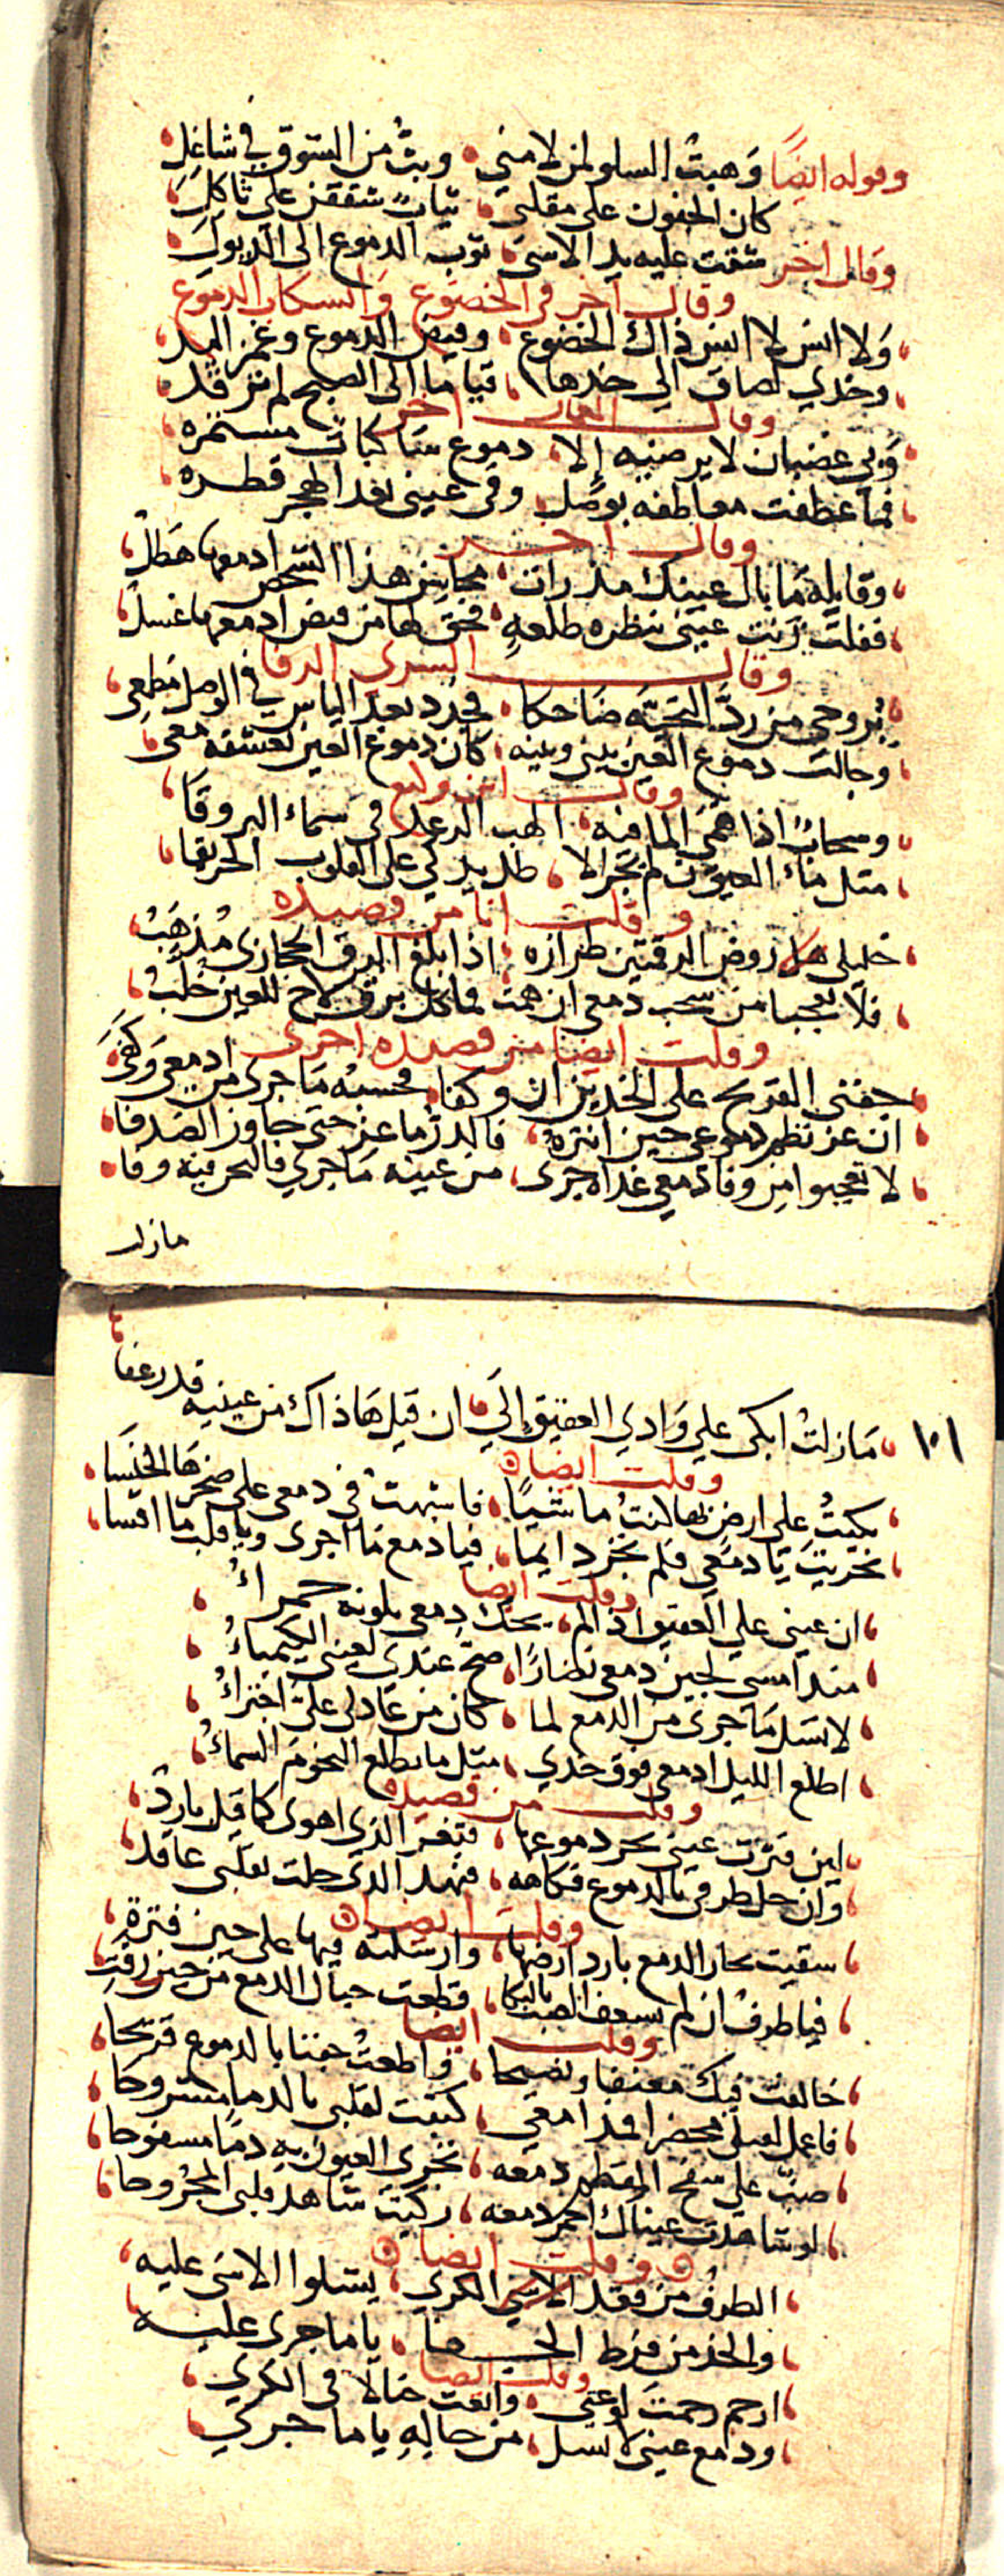 وقوله ايضًا وَهبتُ السلو لمن لامني وبتُّ من الشوق في شاغِلِ
كان الجفون على مقلتي ثيابٌ شققن على ثاكلِ
وقال اخر شقت عليه يد الاسى ثوب الدموع الى الذيولِ
وقال اخر في الخضوع وانسكاب الدموع
وَلا انس لا انس ذاك الخضوع وفيض الدموع وغمز اليد
وخدي مضاف الى خدها قياما الى الصبح لم نرقد
وقال اخر
وَبي غضبان لا يرضيه إلا دموع ساكبات مستمره
فما عطفت معاطفه بوصل وفي عيني بعد الهجر قطره
وقال اخر
وقايلة ما بال عينك مذ رات محاسن هذا الشخص ادمعها هطلُ
فقلت زنت عيني بنظره طلعهِ فحق لها من فيض ادمعها غسلُ
وقال السري الرفا
بروحي من ردّ التحيّه ضاحكا فجدد بعد الياس في الوصل مطمعي
وحالت دموع العين بيني وبينه كان دموع العين تعشقه معي
وقال ابن وكيع
وسحابٌ اذا همى الما فيه الهب الرعد في سماء البروقَا
مثل ماء العيون لم يجر الا ظل يذكي على القلوب الحريقا
وقلت انا من قصيده
خليلى هل روض الرقمتين طرازه اذا بلغ البرق الحجازي مُذهَبُ
فلا تعجبا من سحب دمعي ان همت فما كل برق لاح للعين خُلّبُ
وقلت ايضا من قصيده اخرى
جفني القريح على الخدين ان وكفا فحسبه ما جرى من ادمعي وَكفَى
ان عز نظم دموعي حين انثره فالدرُّ ما عز حتى جاوز الصدفا
لا تعجبوا من وفا دمعي غداه جرى من عينه ما جرى فالبحر فيه وفا
مازلت
١٠١ مَازلتُ ابكي علي وَادي العقيق إلَى ان قيل هَا ذاك من عينيه قد رعفا
وقلت ايضا
بكيتُ على ارض بها لنتُ ماشيًا فاشبهتُ في دمعي على صخرها الخنسَا
نخريت يا دمعي فلم نخر دايما فيا دمع ما اجرى ويا قلب ما اقسا
وقلت ايضا
ان عيني على العقيق اذا لم يحك دمعي بلونه حمراءُ
منذ امسى لجين دمعي نضارًا صحّ عندي لعيني الكيمياءُ
لا تسل ما جرى من الدمع لما كان من عاذلي عليّ اجتراءُ
اطلع الليل ادمعي فوق خدي مثل ما تطلع النجومَ السماءُ
وقلت من قصيده
لين فترت عيني بحر دموعها فثغر الذي اهوى كما قيل باردُ
وان حل طرفي بالدموع فكاهه فنهد الذي حلت بقلبي عاقدُ
وقلت ايضا
سقيت بحار الدمع بارد ارضها وارسلته فيها على حين فترةٍ
فيا طرفُ ان لم يسعف الصب بالبكا قطعت حبال الدمع من حين رقتِ
وقلت ايضا
خالفت فيك معنفا ونصيحا واطعتُ جفنا بالدموع قريحا
فاعمل لقبلي محضرا فمدامعي كتبت لقلبي بالدما مشروحا
صبّ على سفح المقطم دمعه تجري العيون به دمًا مسفوحا
لو شاهدت عيناك احمر دمعه زكيت شاهد قلبي المجروحا
وقلت ايضا
الطرفُ من فقد الكرى يشكوا الاسى عليه
والخد من فرط الجفا يا ما جرى عليه
وقلت ايضا
ارحم رحمتَ لوعتي وابعث خيالا في الكرى
ودمع عيني لا تسل من حالهِ يا ما جرى